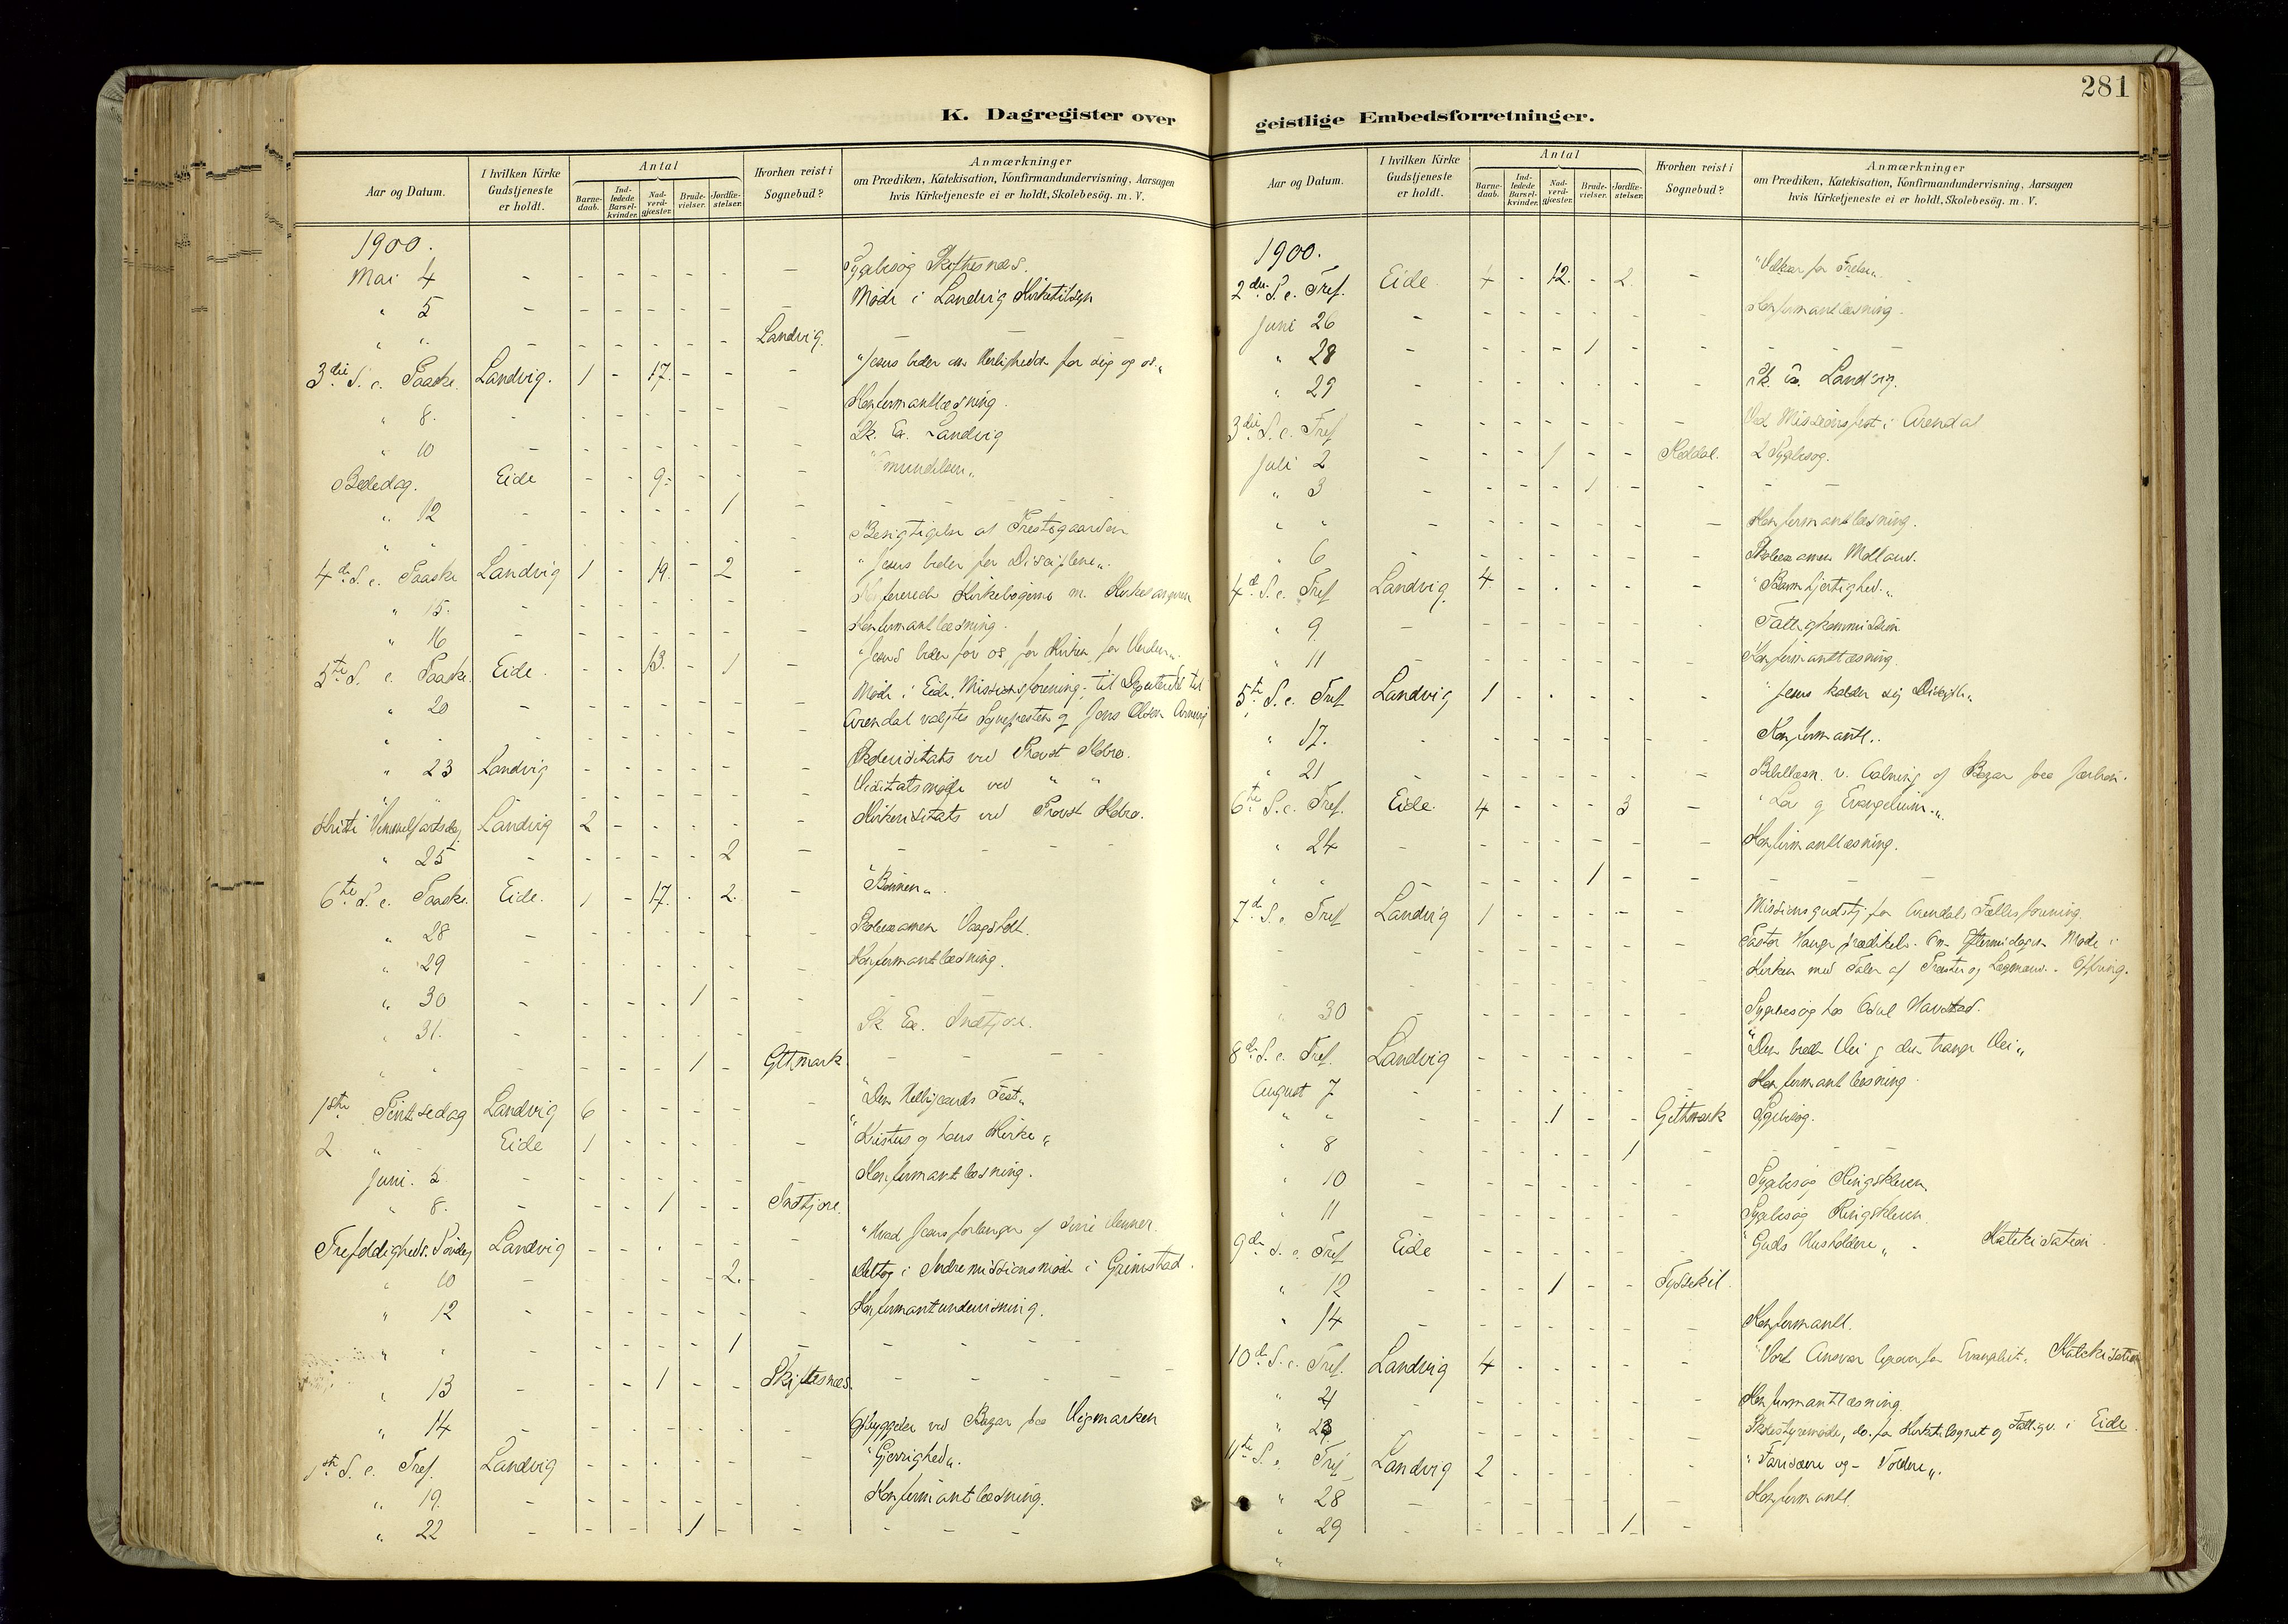 281
K. Dagregister over
Aar og Datum.
I hvilken Kirke Gudstjeneste er holdt.
Antal
Barne-daab.
Ind-ledede Barsel-kvinder.
Nad-verd-gjæster.
Brude-vielser.
Jordfæ-stelser.
Hvorhen reist i Sognebud?
Anmærkninger
om Prædiken, Katekisation, Konfirmandundervisning, Aarsagen
hvis Kirketjeneste ei er holdt, Skolebesög. m. V.
1900.
Mai 4 - - - - - - - Sygebesög Skiftesnes.
" 5 - - - - - - - Möde i Landvig Kirketilsyn
" " - - - - - - Landvig. - -
3die S. e. Paaske. Landvig. 1 - 17. - - - "Jesus beder om Herligheden for sig og os."
" 8. - - - - - - - Konfirmantlæsning.
" 10 - - - - - - - Sk. Ex. Landvig
Bededag. Eide - - 9. - - -
" 12 - - - - - 1 - - -
" " - - - - - - - Besigtigelse af Præstegaarden
4de S. e. Paaske Landvig 1 - 19. - 2 - "Jesus beder for Disciplene".
" 15. - - - - - - - Konfererede Kirkebögerne m. Kirkesangeren
" 16 - - - - - - - Konfirmantlæsning.
5te S. e. Paaske. Eide. - - 13. - 1 - "Jesus beder for os, for Kirken, for Verden".
" 20 - - - - - - - Möde i Eide Missionsforening; til Deputerede til
" - - - - - - - Arendal valgtes Sognepresten og Jens Olsen
" 23 Landvig - - - - - - Skolevisitats ved Provst
Visitatsmöde ved " "
Kristi Himmelfartsdag Landvig 2 - - - - - Kirkevisitats ved Provst
" 25 - - - - - 2 - - -
6te S. e. Paaske. Eide. 1 - 17. - 2. - "Bönnen".
" 28 - - - - - - - Skoleexamen Vaagsholt.
" 29 - - - - - - - Konfirmantlæsning.
" 30 - - - - 1 - -
" 31. - - - - - - - Sk Ex. Indtjore.
" " - - - - 1 - Gttmark. - - -
1ste Pintsedag Landvig 6 - - - - - "Den Helligaands Fest"
2 " Eide 1 - - - - - "Kristus og hans Kirke"
Juni. 5 - - - - - - - Konfirmantlæsning.
" 8. - - - 1 - - Indtjore.
Trefoldigheds. Söndag Landvig - - - - - - "Hvad Jesus forlanger af sine Venner.
" 10 - - - - - 2. - Deltog i Indremissionsmöde i Grimstad.
" 12 - - - - - - - Konfirmantundervisning.
" " - - - - - 1 - - - -
" 13 - - - 1 - - Skiftesnæs. - - -
" 14 - - - - - - - Opbyggelse ved Bazar paa Vigmarken
1ste S. e. Tref. Landvig - - - - - - "Gjerrighed".
" 19. - - - - - - - Konfirmantlæsning.
" 22 - - - - 1 - - - - -
geistlige Embedsforretninger.
Aar og Datum.
I hvilken Kirke Gudstjeneste er holdt.
Antal
Barne-daab.
Ind-ledede Barsel-kvinder.
Nad-verd-gjæster.
Brude-vielser.
Jordfæ-stelser.
Hvorhen reist i Sognebud?
Anmærkninger
om Prædiken, Katekisation, Konfirmandundervisning, Aarsagen
hvis Kirketjeneste ei er holdt, Skolebesög. m. V.
1900.
2den S. e. Tref. Eide. 4 - 12. - 2. - "Vilkaar for Frelse".
Juni 26 - - - - - - - Konfirmantlæsning.
" 28 - - - - 1 - - - -
" 29 - - - - - - - Sk. Ex. Landvig.
3die S. e. Tref - - - - - - - Ved Missionsfest i Arendal
Juli 2 - - - 1 - - Roddal. 2 Sygebesög.
" 3 - - - - 1 - - - -
" " - - - - - - - Konfirmantlæsning.
" 6 - - - - - - - Skoleexamen Molland.
4de S. e. Tref Landvig. 4. - - - - - "Barmhjertighed".
" 9. - - - - - - - Fattigkommission
" 11 - - - - - - - Konfirmantlæsning.
5te S. e. Tref Landvig 1 - - - - - "Jesus kalder sig Disciple"
" 17. - - - - - - - Konfirmantl.
" 21 - - - - - - - Bibellæsn. v. Aabning af Bazar
6te S. e. Tref. Eide. 4 - - - 3 - "Lov og Evangelium".
" 24 - - - - - - - Konfirmantlæsning.
" " - - - - 1 - - - -
7de S. e. Tref Landvig 1 - - - - - Missionsgudstj. for Arendals Fællesforening.
Pastor Hauge prædikede. Om Eftermidagen Möde i
Kirken med Taler af Præster og Lægmænd. Offring.
" 30 - - - - - - - Sygebesög hos
8de S. e. Tref. Landvig - - - - - - "Den brede Vei og den trange Vei"
August 7 - - - - - - - Konfirmantlæsning.
" " - - - 1 - - Gittmark Sygebesög.
" 8 - - - - - 1 - - -
" 10 - - - - - - - Sygebesög Ringskleven.
" 11 - - - - - - - Sygebesög Ringskleven.
9de S. e. Tref Eide - - - - - - "Guds Husholdere" - Katekisation.
" 12 - - - 1 - - Tyssekil.
" 14 - - - - - - - Konfirmantl.
10de S. e. Tref. Landvig 4 - - - - - "Vort Ansvar Katekisation
" 21 - - - - - - - Konfirmantlæsning.
" 23 - - - - - - - Skolestyremöde, do. for Kirketilsynet og Fattigv. i Eide.
11te S. e. Tref Landvig 2 - - - - - "Farisæere og Toldere".
" 28 - - - - - - - Konfirmantl.
" 29 - - - - - 1 -
"